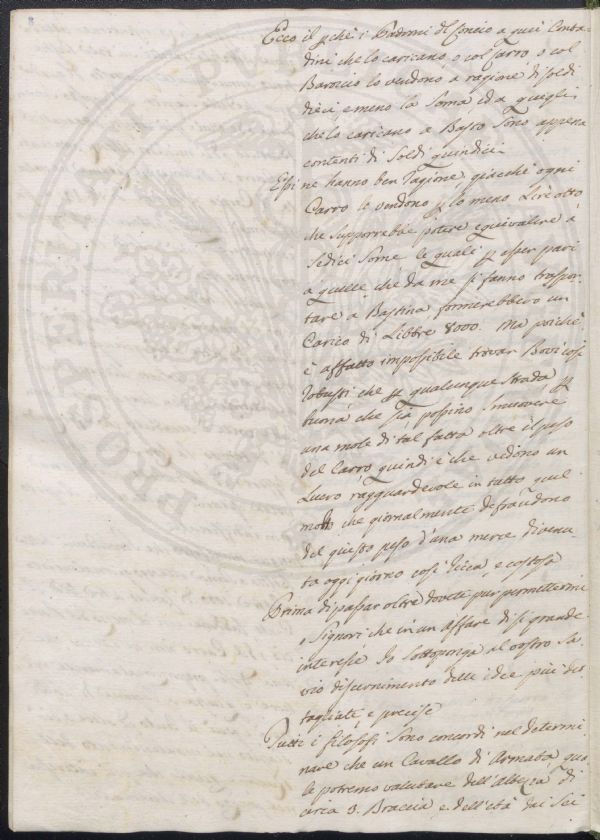 Ecco il perchè i Padroni del Concio a quei Conta-
dini che lo caricano o col Carro, o col
Baroccio lo vendono a ragione di soldi
dieci, e meno la Soma, ed a quegli
che lo caricano a Basto sono appena
contenti di Soldi quindici.
Essi ne hanno ben ragione, giacchè ogni
Carro lo vendono per lo meno Lire otto
che supporrebbe potere equivalere a
sedici Some, le quali per esser pari
a quelle che da me si fanno traspor-
tare a Bastina formerebbero un
Carico di Libbre 8000. Ma poichè
è affatto impossibile trovar Bovi così
robusti che per qualunque strada per
buona che sia possino smuovere
una mole di tal fatta oltre il peso
del Carro, quindi è che vedono un
Lucro ragguardevole in tatto quel
modo che giornalmente defraudono
del giusto peso d'una merce divenu-
ta oggi giorno così ricca, e costosa
Prima di passar oltre dovete pur permettermi
o Signori che in un affare di sì grande
interesse Io sottoponga al vostro Sa-
vio discernimento delle idee più det-
tagliate, e precise
Tutti i filosofi sono concordi nel determi
nare che un Cavallo di Armata, qua
le potremo valutare dell'Altezza di
circa 3. Braccia, e dell'età dai Sei
PROSPERITATI PUB